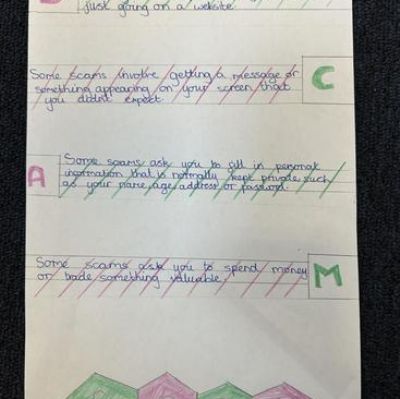 just going on a website
Some scams involve getting a message or
something appearing on your screen that
you didnt expect.
C
A
Some scams ask you to fill in personal
information that is normally kept private such
as your name, age, address or password.
Some scams ask you to spend money
or trade something valuable.
M